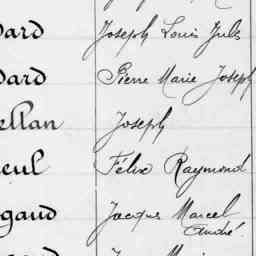 dard Joseph Louis Jules
dard Pierre Marie Joseph
ellan Joseph
eul Félix Raymond
gaud Jacques Marcel
André